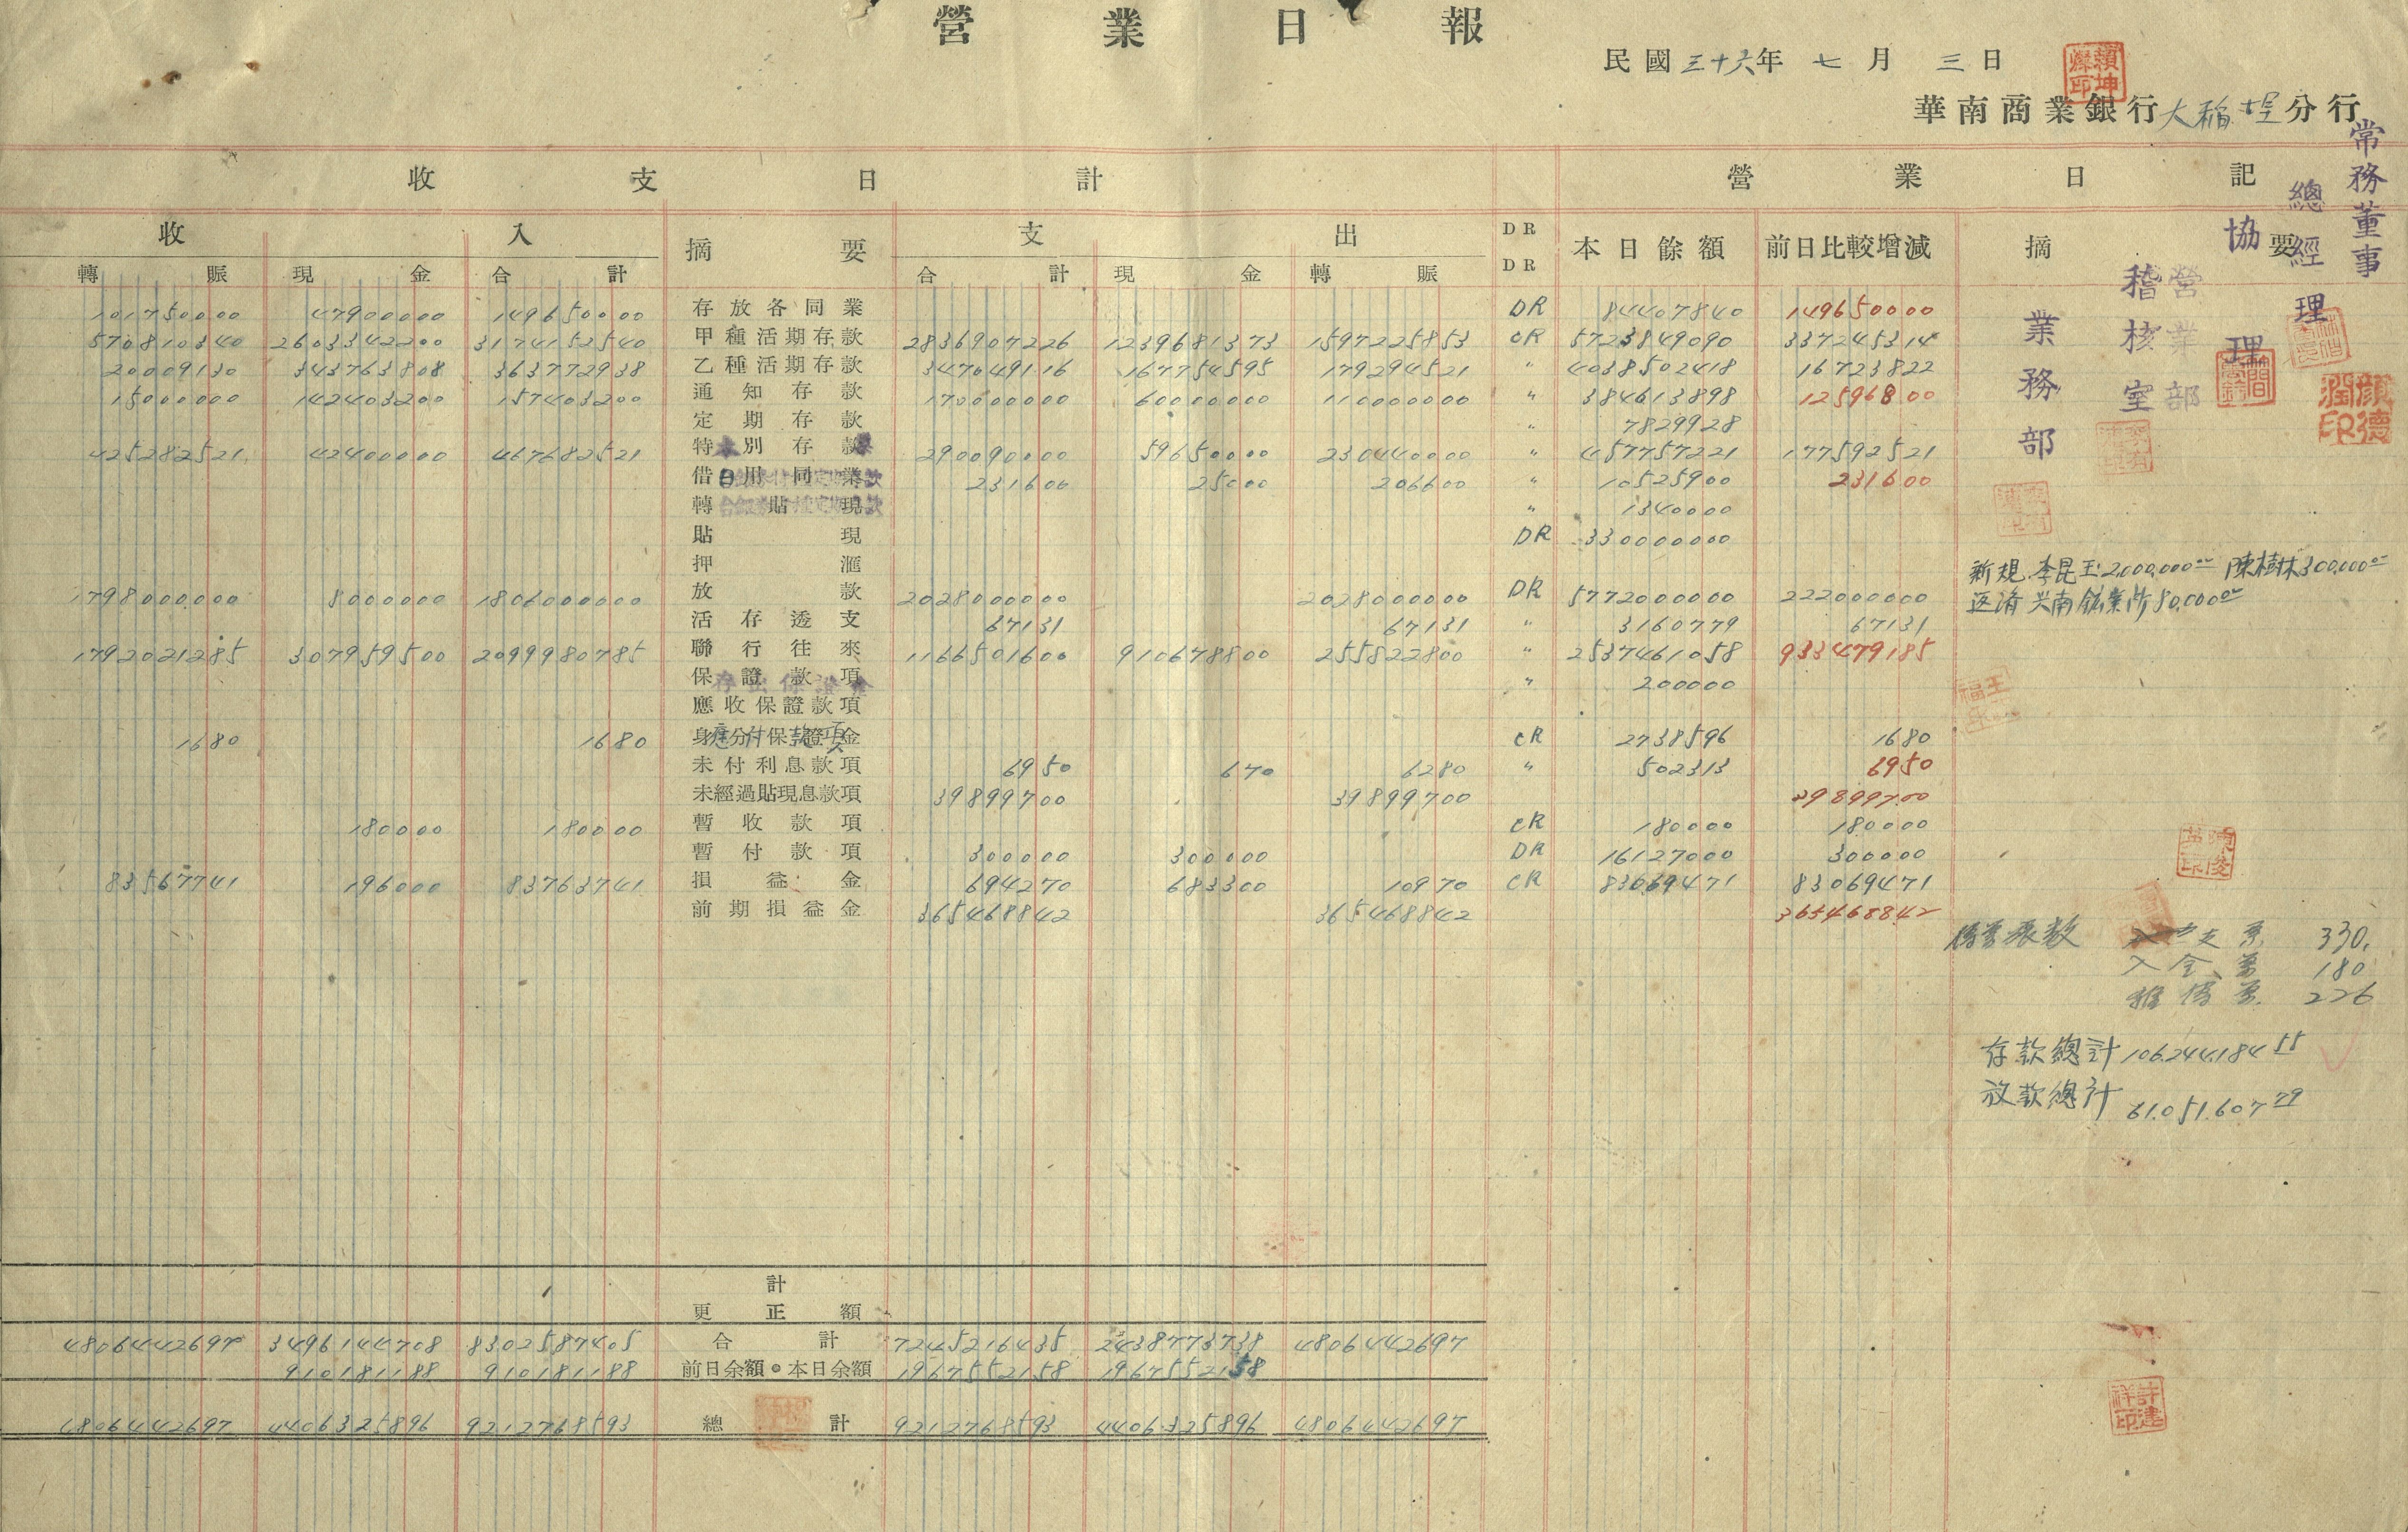 營業日報
民國三十六年七月三日
華南商業銀行大稻埕分行
常務董事
總經理
協理
稽核室
營業部
業務部
收支日計 營業日記
收入 摘要 支出 DR DR 本日餘額 前日比較增減 摘要
轉賬 現金 合計 合計 現金 轉賬
101750000 47900000 149650000 存放各同業 DR 84407840 149650000
570810340 2603342200 3174152540 甲種活期存款 2836907226 1239681373 1597225853 CR 5723849090 337245314
20009130 343763808 363772938 乙種活期存款 347049116 167754595 179294521 〃 4038502418 16723822
15000000 142403200 157403200 通知存款 170000000 60000000 110000000 〃 384613898 12596800
定期存款 〃 7829928
425282521 42400000 467682521 特別存款 290090000 59650000 230440000 〃 457757221 177592521
借用同業 231600 25000 206600 〃 10525900 231600
轉貼現 〃 1340000
貼現 DR 330000000
押滙
新規 李昆玉 2,000,000 陳樹林 300,000
1798000000 8000000 1806000000 放款 2028000000 2028000000 DR 5772000000 222000000 返済 兴南鉱業所 80,000
活存透支 67131 67131 〃 3160779 67131
1792021285 307959500 2099980785 聯行往來 1166501600 910678800 255822800 〃 2537461058 933479185
保證款項 存出保證金 〃 200000
應收保證款項
1680 1680 身分保證金 應付款項 CR 2738596 1680
未付利息款項 6950 670 6280 〃 502313 6950
未經過貼現息款項 39899700 39899700 39899700
180000 180000 暫收款項 CR 180000 180000
暫付款項 300000 300000 DR 16127000 300000
83567741 196000 83763741 損益金 694270 683300 10970 CR 83069471 83069471
前期損益金 365468842 365468842 365468842
傳票張数 支票 330
入金票 180
振傳票 226
存款總計 106,244,184 55
放款總計 61,051,607 79
計
更正額
4806442697 3496144708 8302587405 合計 7245216435 2438773738 4806442697
910181188 910181188 前日余額・本日余額 1967552158 1967552158
4806442697 4406325896 9212768593 總計 9212768593 4406325896 4806442697